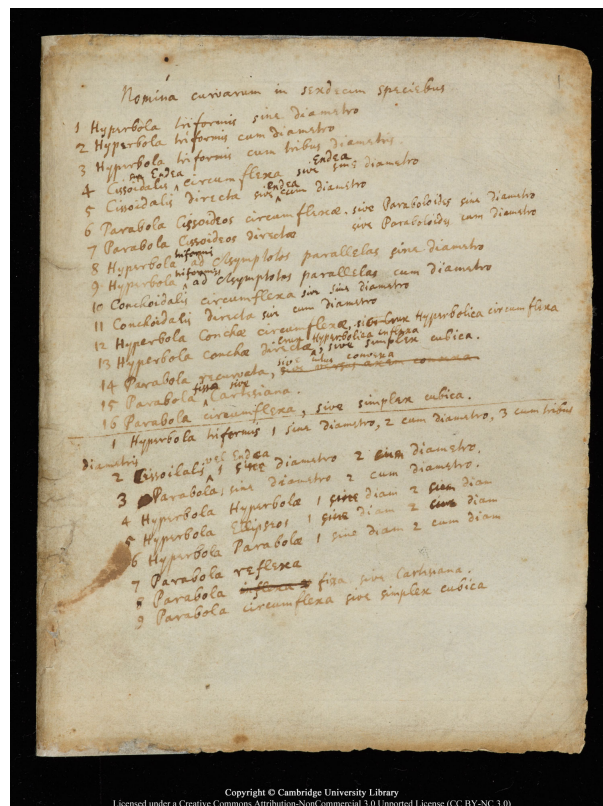 1
Nomina curvarum in sexdecim speciebus
1 Hyperbola triformis sine diametro
2 Hyperbola triformis cum diametro
3 Hyperbola triformis cum tribus diametris
4 Cissoidalis circumflexa sive Endea sine diametro
5 Cissoidalis directa sive Endea cum diametro
6 Parabola Cissoideos circumflexæ. sive Paraboloides sine diametro
7 Parabola Cissoideos directæ sive Paraboloides cum diametro
8 Hyperbola triformis ad Asymptotos parallelas sine diametro
9 Hyperbola triformis ad Asymptotos parallelas cum diametro
10 Conchoidalis circumflexa sive sine diametro
11 Conchoidalis directa sive cum diametro
12 Hyperbola Conchæ circumflexæ, sive Crux Hyperbolica circumflexa
13 Hyperbola conchæ directæ, Crux Hyperbolica
14 Parabola recurvata, sive simplex cubica.
15 Parabola fissa sive Cartesiana.
16 Parabola circumflexa, sive simplex cubica.
1 Hyperbola triformis 1 sine diametro, 2 cum diametro, 3 cum tribus
diametris
2 Cissoilalis vel Endea 1 sine diametro 2 cum diametro.
3 Parabola, sine diametro 2 cum diametro.
4 Hyperbola Hyperbolæ 1 sine diam 2 cum diam
5 Hyperbola Ellipseos 1 sine diam 2 cum diam
6 Hyperbola Parabolæ 1 sine diam 2 cum diam
7 Parabola reflexa
8 Parabola fissa sive Cartesiana.
9 Parabola circumflexa sive simplex cubica
Copyright © Cambridge University Library
Licensed under a Creative Commons Attribution-NonCommercial 3.0 Unported License (CC BY-NC 3.0)